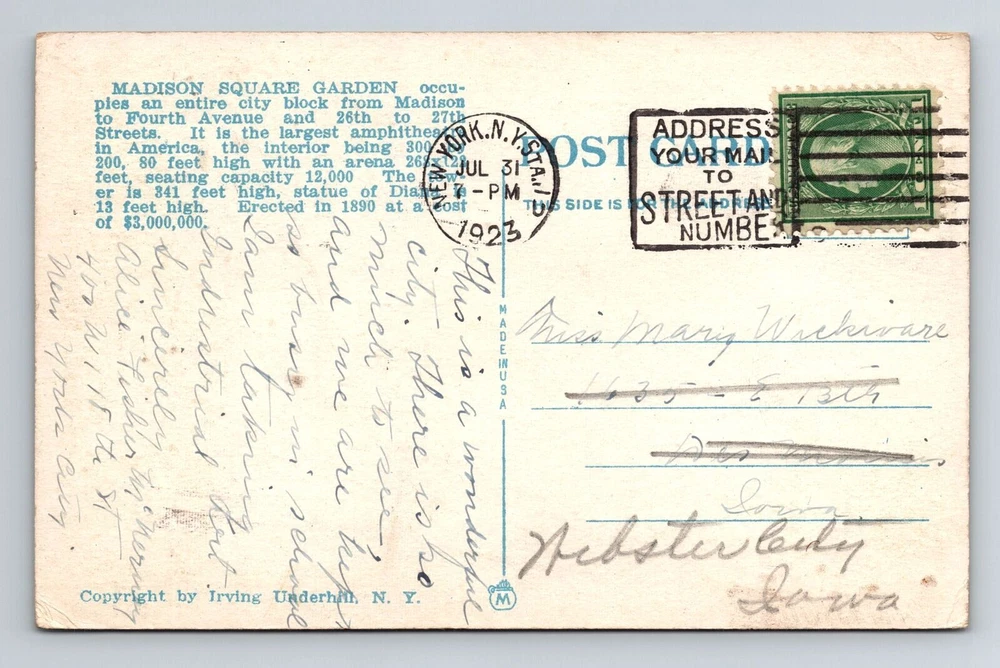 MADISON SQUARE GARDEN occu-
pies an entire city block from Madison
to Fourth Avenue and 26th to 27th
Streets. It is the largest amphithea
in America, the interior being 300
200, 80 feet high with an arena 268 122
feet, seating capacity 12,000 The
er is 341 feet high, statue of Diana is
13 feet high. Erected in 1890 at a cost
of $3,000,000.
NEW YORK, N.Y. STA. U
JUL 31
7-PM
1923
POST CARD
THIS SIDE IS FOR THE ADDRESS
ADDRESS
YOUR MAIL
TO
STREET AND
NUMBER
1 CENT 1
This is a wonderful
city. There is so
much to see,
and we are kept
so busy in school
I am taking
Industrial Art
Sincerely
Alice Fisher McNerney
400 W 118th St
New York City
MADE IN USA
Miss Mary Wickware
1635 - E 13th
Des Moines
Iowa.
Webster City
Iowa
Copyright by Irving Underhill, N. Y.
M